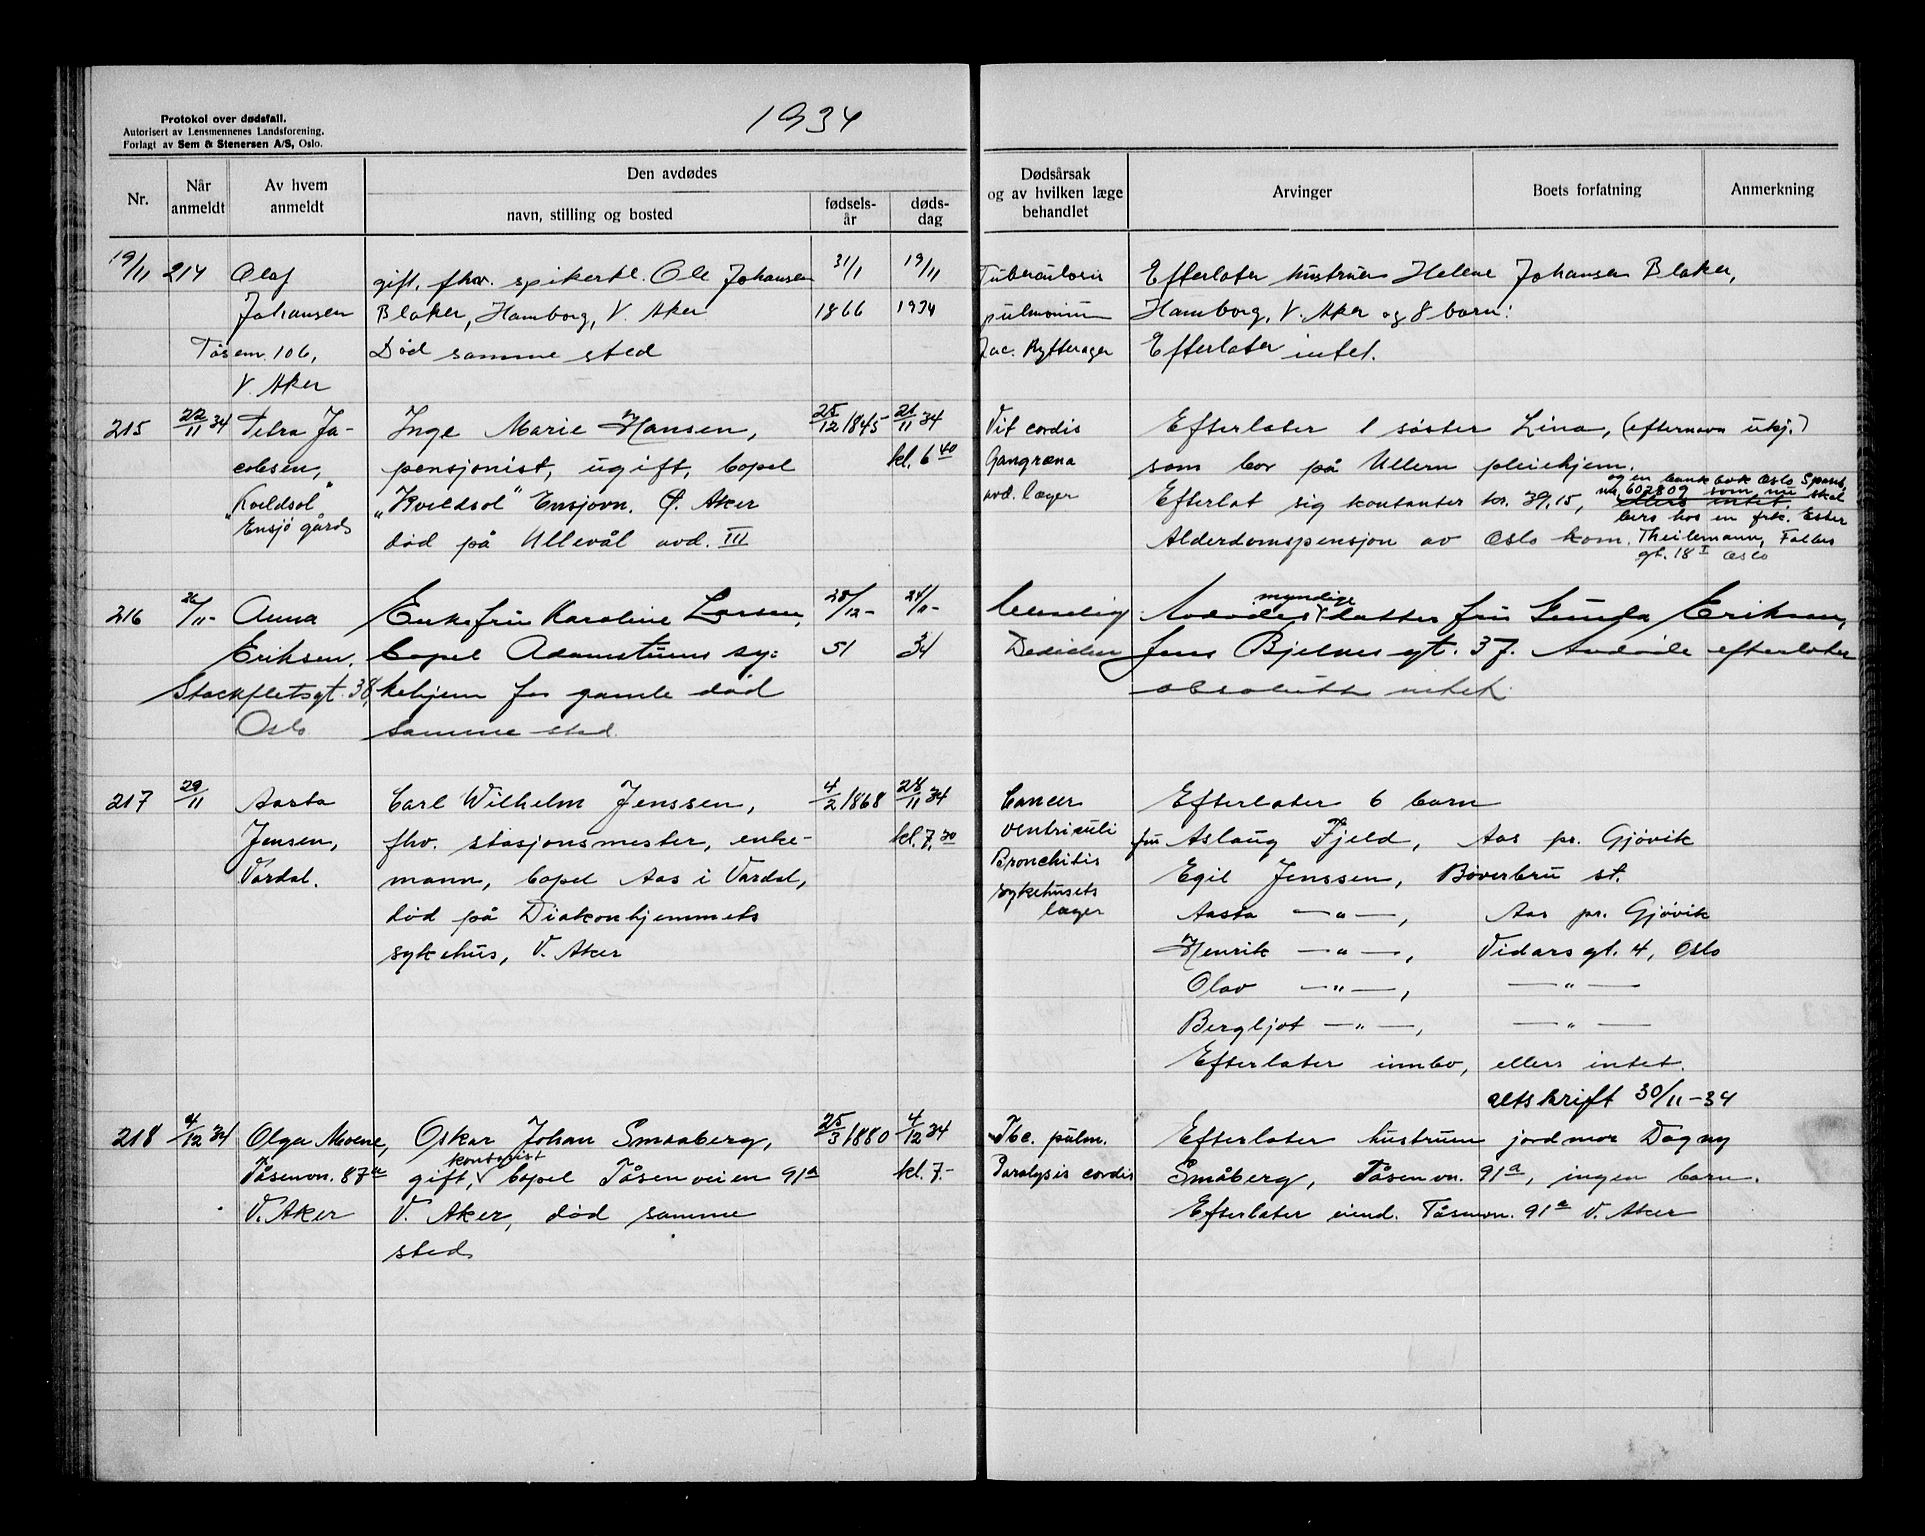 Protokol over dødsfall.
Autorisert av Lensmennenes Landsforening.
Forlagt av Sem & Stenersen A/S, Oslo.
1934
Nr.
Når anmeldt
Av hvem anmeldt
Den avdødes
navn, stilling og bosted
fødsels-år
døds-dag
Dødsårsak og av hvilken læge behandlet
Arvinger
Boets forfatning
Anmerkning
19/11 214 Olaf gift. fhv. spikerkl. Ole Johansen 31/1 19/11 Tuberculosis Efterlater hustruen Helene Johansen Blaker,
Johansen Blaker, Hamborg, V. Aker 1866 1934 pulmonum Hamborg, V. Aker og 8 barn.
Tåsenv. 106, Død samme sted Jac. Rytterager Efterlater intet.
V. Aker
215 22/11 34 Petra Ja- Inge Marie Hansen, 25/12 1845 21/11 34 Vit cordis Efterlater 1 søster Lina, (efternavn ukj.)
cobsen, pensjonist, ugift, bopel kl. 6 40 Gangræna som bor på Ullern pleiehjem.
og en bankbok Oslo Spareb.
"Kveldsol" "Kveldsol" Ensjøvn. Ø. Aker avd. læger Efterlot sig kontanter kr. 39,15, ellers intet.
nr. 602809 som nu skal
bero hos en frk. Ester
Ensjø gård død på Ullevål avd. III Alderdomspensjon av Oslo kom. Theilemann, Falbes
gt. 18 I Oslo
216 26/11- Anna Enkefru Karoline Larsen, 28/12- 24/11- Avdødes myndige datter fru Gunda Eriksen,
Eriksen, bopel Adamstuens sy- 51 34 Jens Bjelkes gt. 37. Avdøde efterlater
Stockfletsgt. 38, kehjem for gamle død absolutt intet.
Oslo samme sted.
217 29/11 Aasta Carl Wilhelm Jenssen, 4/2 1868 28/11 34 Cancer Efterlater 6 barn
Jensen, fhv. stasjonsmester, enke- kl. 7,30 ventriculi fru Aslaug Fjeld, Aas pr. Gjøvik
Vardal. mann, bopel Aas i Vardal, Bronchitis Egil Jenssen, Bøverbru st.
død på Diakonhjemmets sykehusets læger Aasta —"—, Aas pr. Gjøvik
sykehus, V. Aker Henrik —"—, Vidarsgt. 4, Oslo
Olav —"—, —"—
Bergljot —"—, —"—
Efterlater innbo, ellers intet.
utskrift 30/11-34
218 4/12 34 Olga Moene, Oskar Johan Smaaberg, 25/3 1880 4/12 34 Tbc. pulm. Efterlater hustruen jordmor Dagny
Tåsenvn. 87a gift, kontorist bopel Tåsenveien 91a kl. 7.- Paralysis cordis Småberg, Tåsenvn. 91a, ingen barn.
V. Aker V. Aker, død samme Efterlater eiend. Tåsenvn. 91a V. Aker
sted